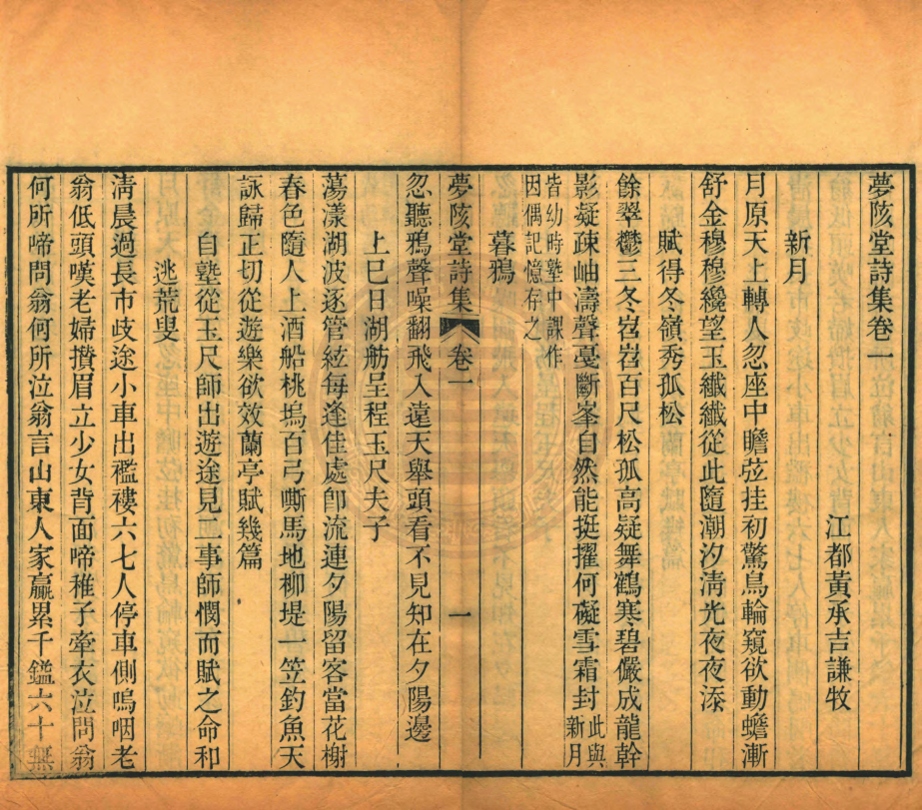 夢陔堂詩集卷一
江都黃承吉謙牧
新月
月原天上轉人忽座中瞻弦挂初驚鳥輪窺欲動蟾漸
舒金穆穆纔望玉纖纖從此隨潮汐淸光夜夜添
賦得冬嶺秀孤松
餘翠鬱三冬岧岧百尺松孤高疑舞鶴寒碧儼成龍幹
影凝疎岫濤聲戞斷峯自然能挺擢何礙雪霜封此與新月
皆幼時塾中課作
因偶記憶存之
暮鴉
忽聽鴉聲噪翻飛入遠天舉頭看不見知在夕陽邊
夢陔堂詩集 卷一 一
上巳日湖舫呈程玉尺夫子
蕩漾湖波逐管絃每逢佳處卽流連夕陽留客當花榭
春色隨人上酒船桃塢百弓嘶馬地柳堤一笠釣魚天
詠歸正切從遊樂欲效蘭亭賦幾篇
自塾從玉尺師出遊途見二事師憫而賦之命和
逃荒叟
淸晨過長市歧途小車出襤褸六七人停車側嗚咽老
翁低頭嘆老婦攢眉立少女背面啼稚子牽衣泣問翁
何所啼問翁何所泣翁言山東人家贏累千鎰六十無